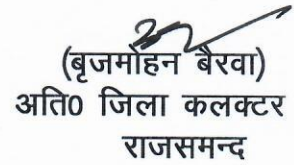 (बृजमोहन बैरवा)
अति0 जिला कलक्टर
राजसमन्द